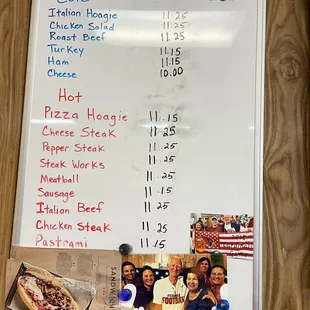 Italian Hoagie 11.25
Chicken Salad 11.25
Roast Beef 11.25
Turkey 11.15
Ham 11.15
Cheese 10.00
Hot
Pizza Hoagie 11.15
Cheese Steak 11.25
Pepper Steak 11.25
Steak Works 11.25
Meatball 11.25
Sausage 11.15
Italian Beef 11.25
Chicken Steak 11.25
Pastrami 11.15
SANDWICH
FOOTBALL